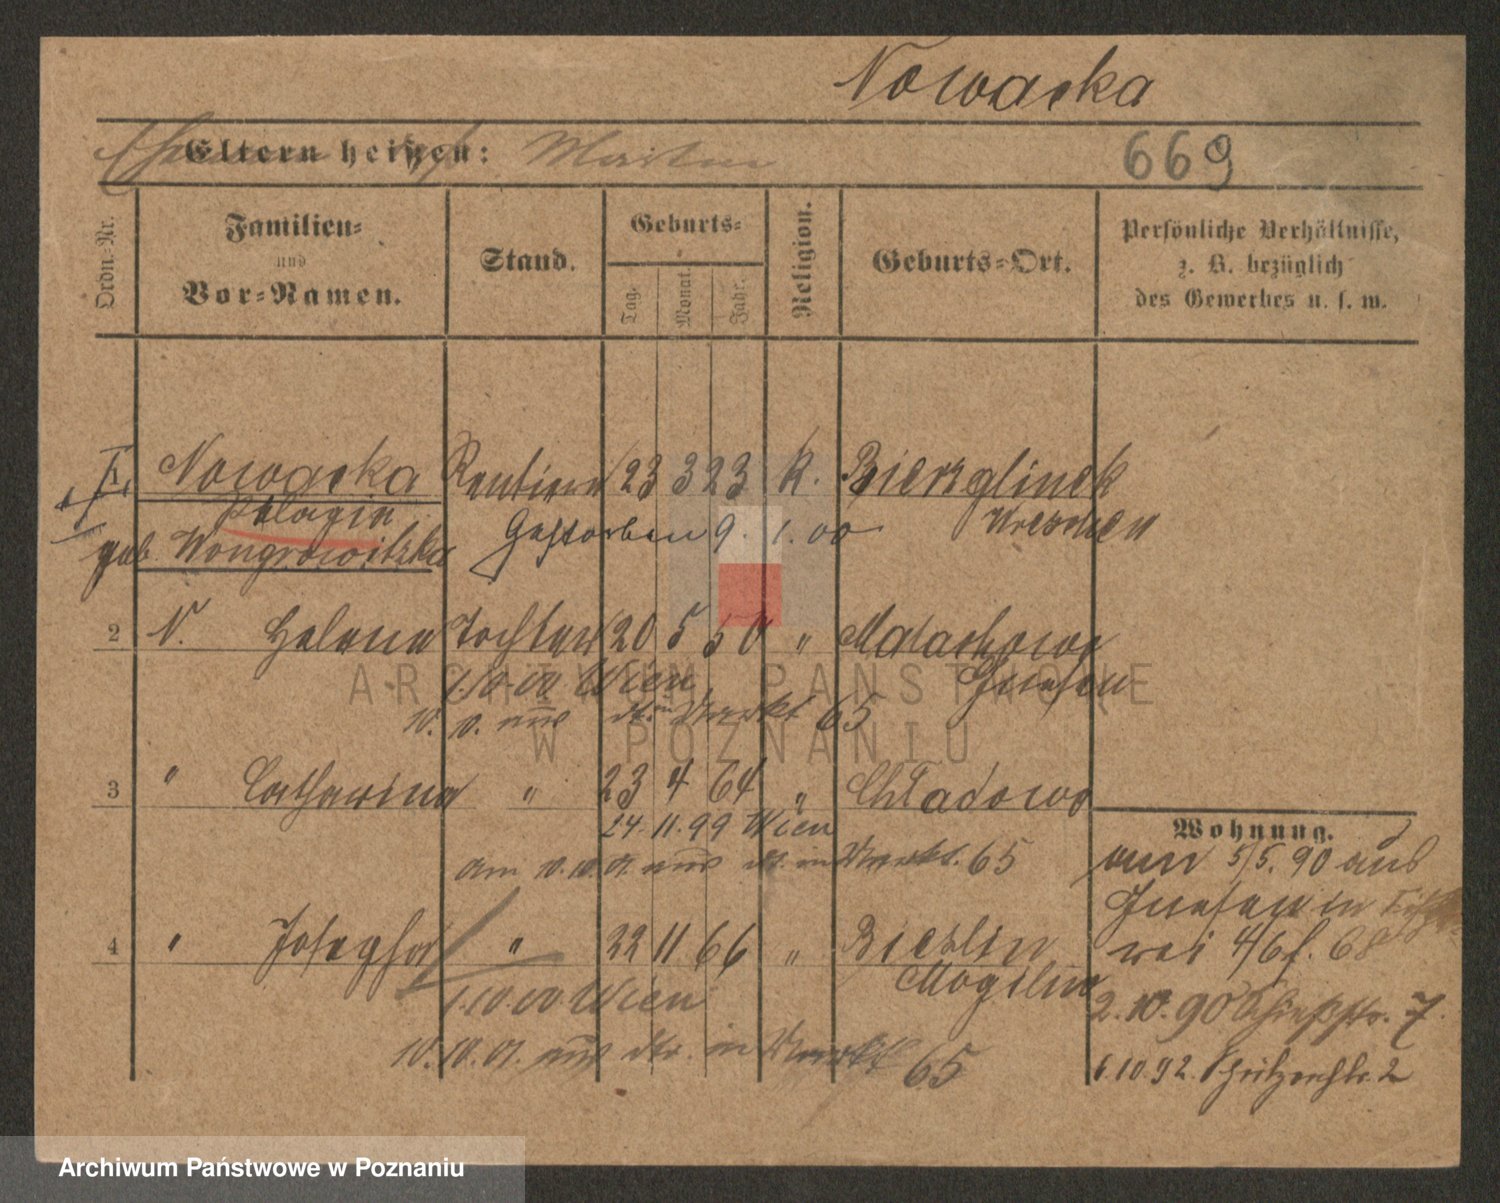 Nowacka
Eltern heißen: Martin
669
Ordn.-Nr.
Familien-
und
Vor-Namen.
Stand.
Geburts-
Tag.
Monat.
Jahr.
Religion.
Geburts-Ort.
Persönliche Verhältnisse,
z. B. bezüglich
des Gewerbes u. s. w.
Nowacka Rentiere 23 3 23 K. Bierzglinek
Pelagia Gestorben 9. 1. 00 Wreschen
geb. Wongrowitzka
2 N. Helena Tochter 20 5 50 " Malachowo
1.10.00 Wien Gnesen
65
3 " Catharina " 23 4 64 " Chladowo
24. 11. 99 Wien
am 65
4 " Josepha " 22 11 66 " Bieslin
Mogilno
1.10.00 Wien
65
Wohnung.
5/5. 90 aus
Gnesen in
4/6 f. 68
2. 10. 90 Schießstr. 7.
1.10.92. Schützenstr. 2
ARCHIWUM PAŃSTWOWE
W POZNANIU
Archiwum Państwowe w Poznaniu